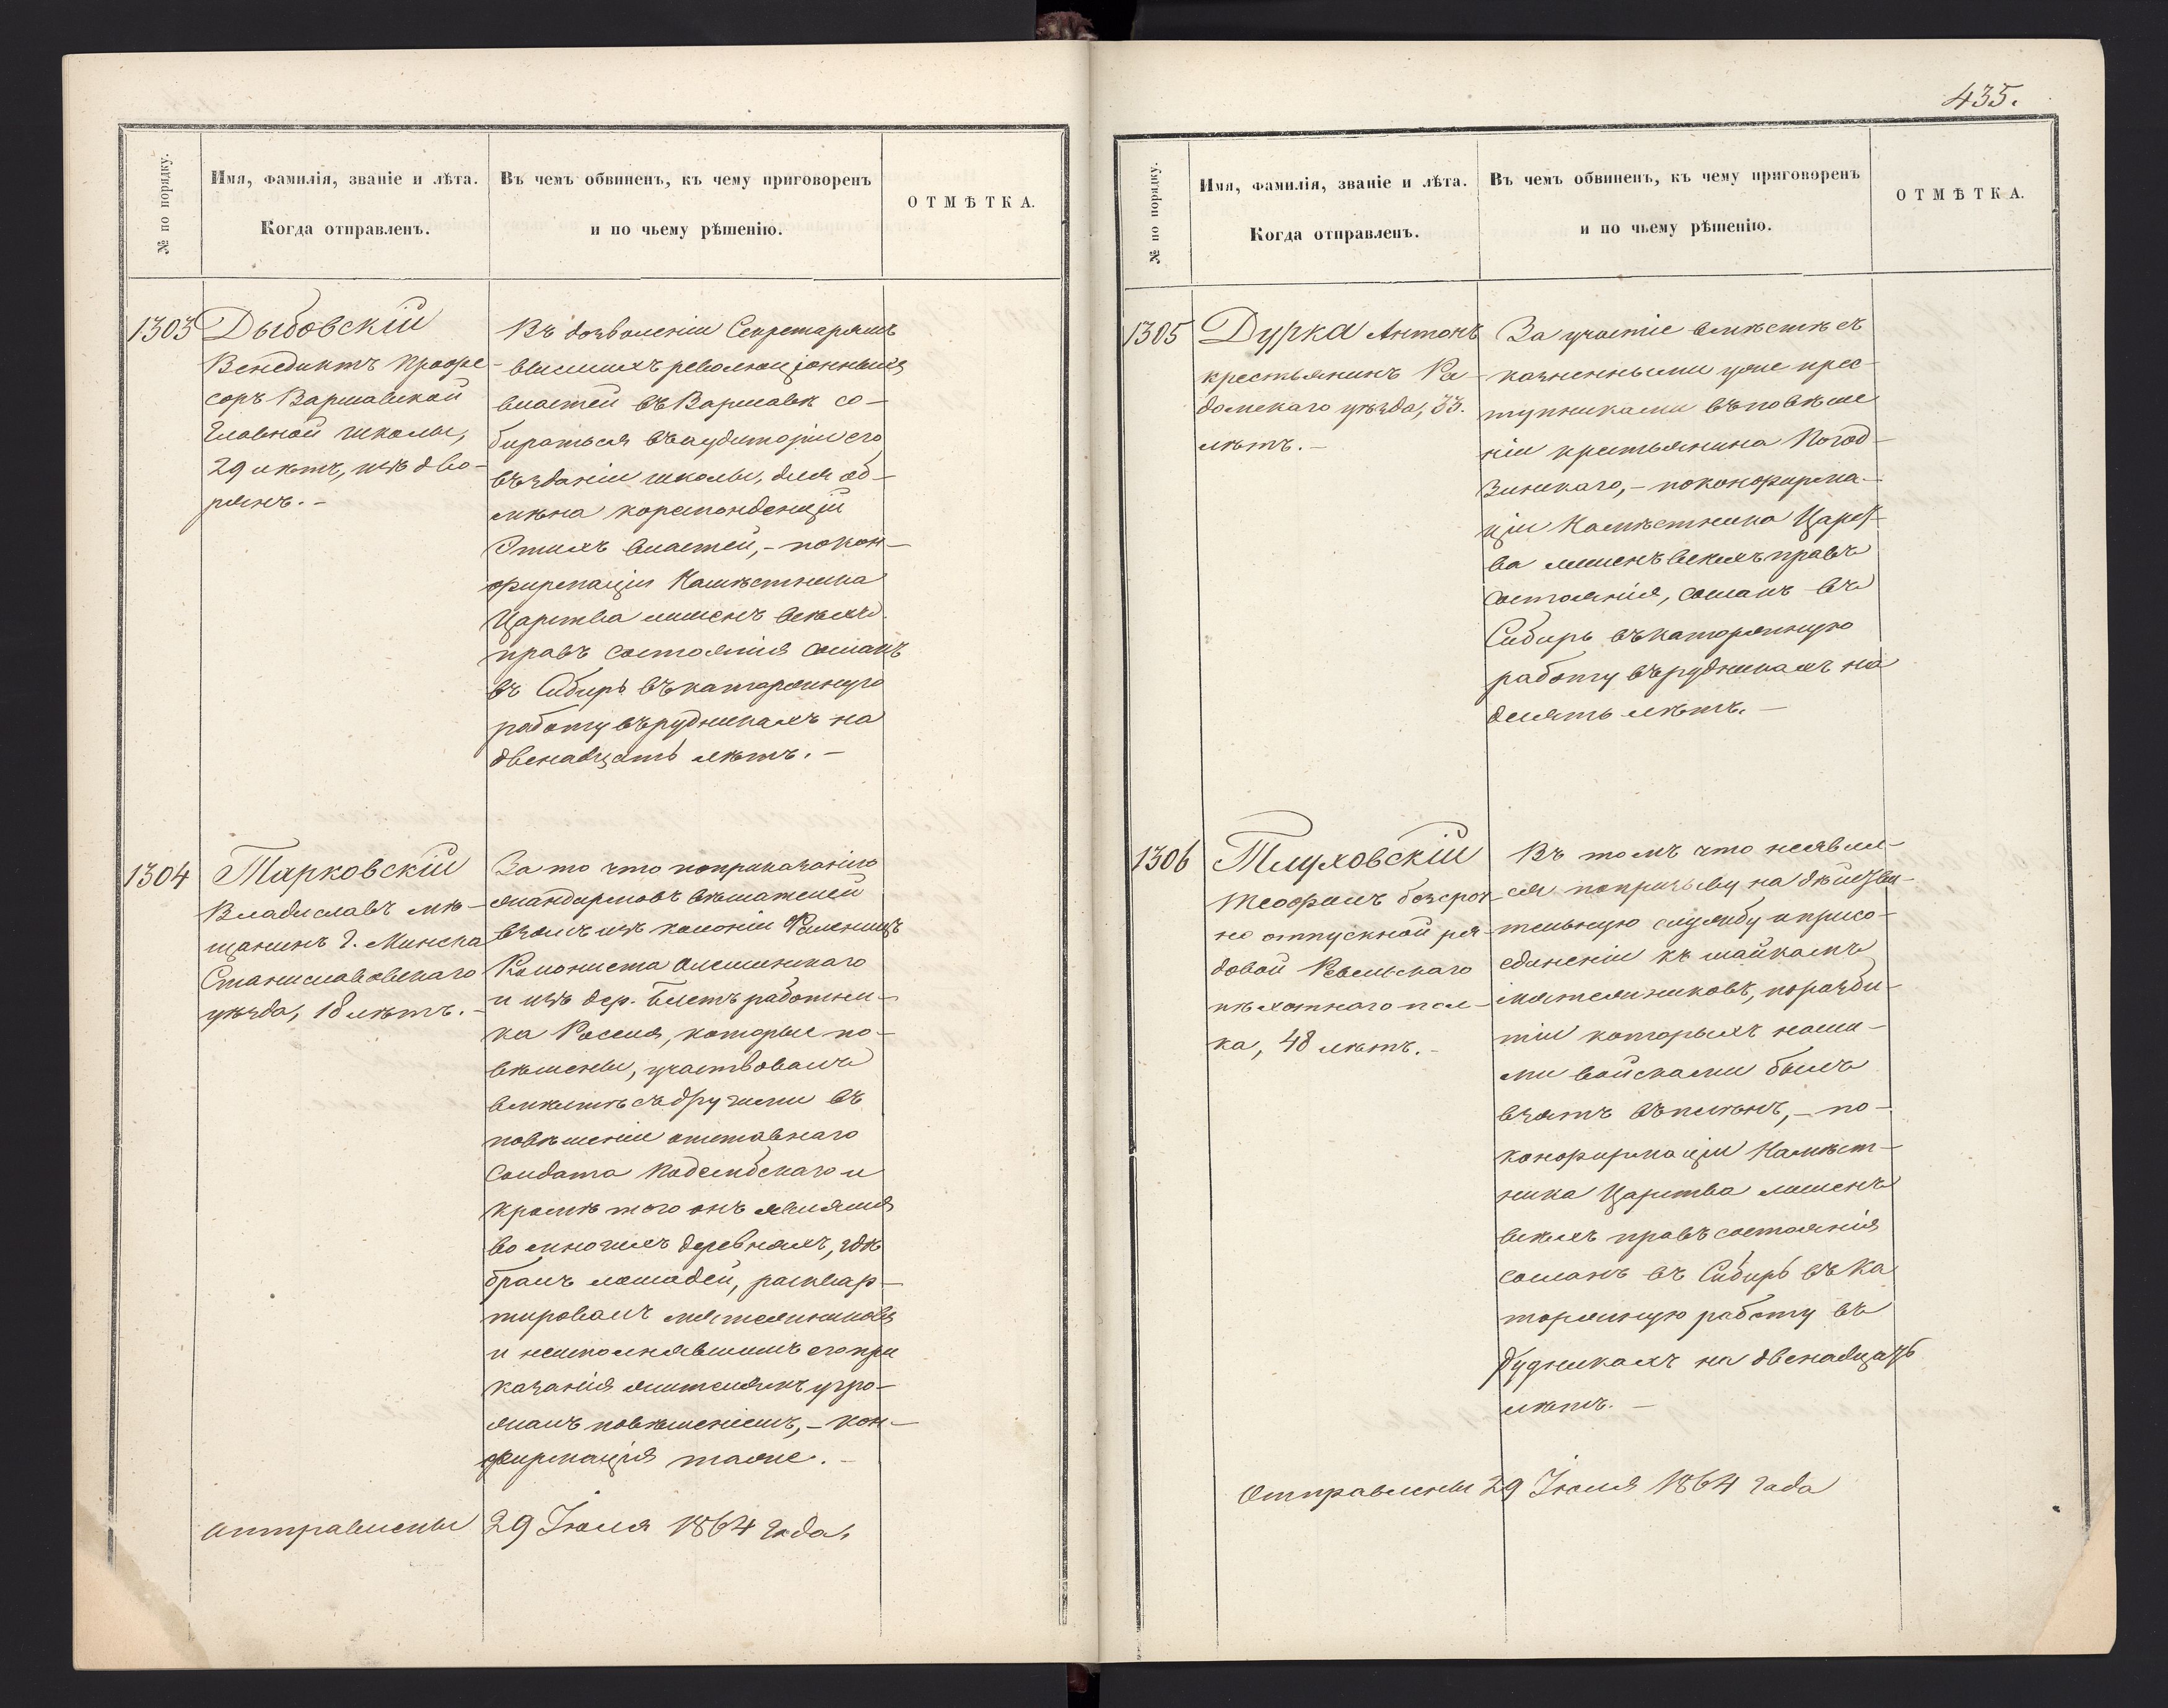 435.
№ по порядку.
Имя, фамилія, званіе и лѣта.
Когда отправленъ.
Въ чемъ обвиненъ, къ чему приговоренъ
и по чьему рѣшенію.
ОТМѢТКА.
1303
Дыбовскій
Бенедиктъ Профе-
соръ Варшавской
Главной школы,
29 лѣтъ, изъ дво-
рянъ. -
Въ дозволеніи Секретарямъ
высшихъ революціонныхъ
властей въ Варшавѣ со-
бираться въ аудиторіи его
въ зданіи школы, для об-
мѣна кореспонденціи
этихъ властей, - по кон-
фирмаціи Намѣстника
Царства лишенъ всѣхъ
правъ состоянія сосланъ
въ Сибирь въ каторжную
работу въ рудникахъ на
двенадцать лѣтъ. -
1304
Тарковскій
Владиславъ мѣ-
щанинъ г. Минска
Станиславовскаго
уѣзда, 18 лѣтъ. -
За то что по приказанію
жандармовъ вѣшателей
взялъ изъ колоніи
Колониста
и изъ дер. работни-
ка которые по-
вѣшены, участвовалъ
вмѣстѣ съ другими въ
повѣшеніи отставнаго
Солдата и
кромѣ того онъ являлся
во многихъ деревняхъ, гдѣ
бралъ лошадей, расквар-
тировалъ мятежниковъ
и неисполнявшимъ его при
казанія жителямъ угро-
жалъ повѣшеніемъ, - кон-
фирмація таже. -
Отправлены 29 Іюля 1864 года.
№ по порядку.
Имя, фамилія, званіе и лѣта.
Когда отправленъ.
Въ чемъ обвиненъ, къ чему приговоренъ
и по чьему рѣшенію.
ОТМѢТКА.
1305
Дурка Антонъ
крестьянинъ Ра-
домскаго уѣзда, 33.
лѣтъ. -
За участіе вмѣстѣ съ
казненными уже прес-
тупниками въ повѣше
ніи крестьянина Погод-
зинскаго, - по конфирма-
ціи Намѣстника Царст-
ва лишенъ всѣхъ правъ
состоянія, сосланъ въ
Сибирь въ каторжную
работу въ рудникахъ на
десять лѣтъ. -
1306
Тлуховскій
Теофилъ безсроч-
но отпускной ря-
довой Ревельскаго
пѣхотнаго пол-
ка, 48 лѣтъ. -
Въ томъ что неявил-
ся по призыву на дѣйстви-
тельную службу и присо-
единеніи къ шайкамъ
мятежниковъ, по разби-
тіи которыхъ наши-
ми войсками былъ
взятъ въ плѣнъ, - по
конфирмаціи Намѣст-
ника Царства лишенъ
всѣхъ правъ состоянія
сосланъ въ Сибирь въ ка
торжную работу въ
рудникахъ на двенадцать
лѣтъ. -
Отправлены 29 Іюля 1864 года